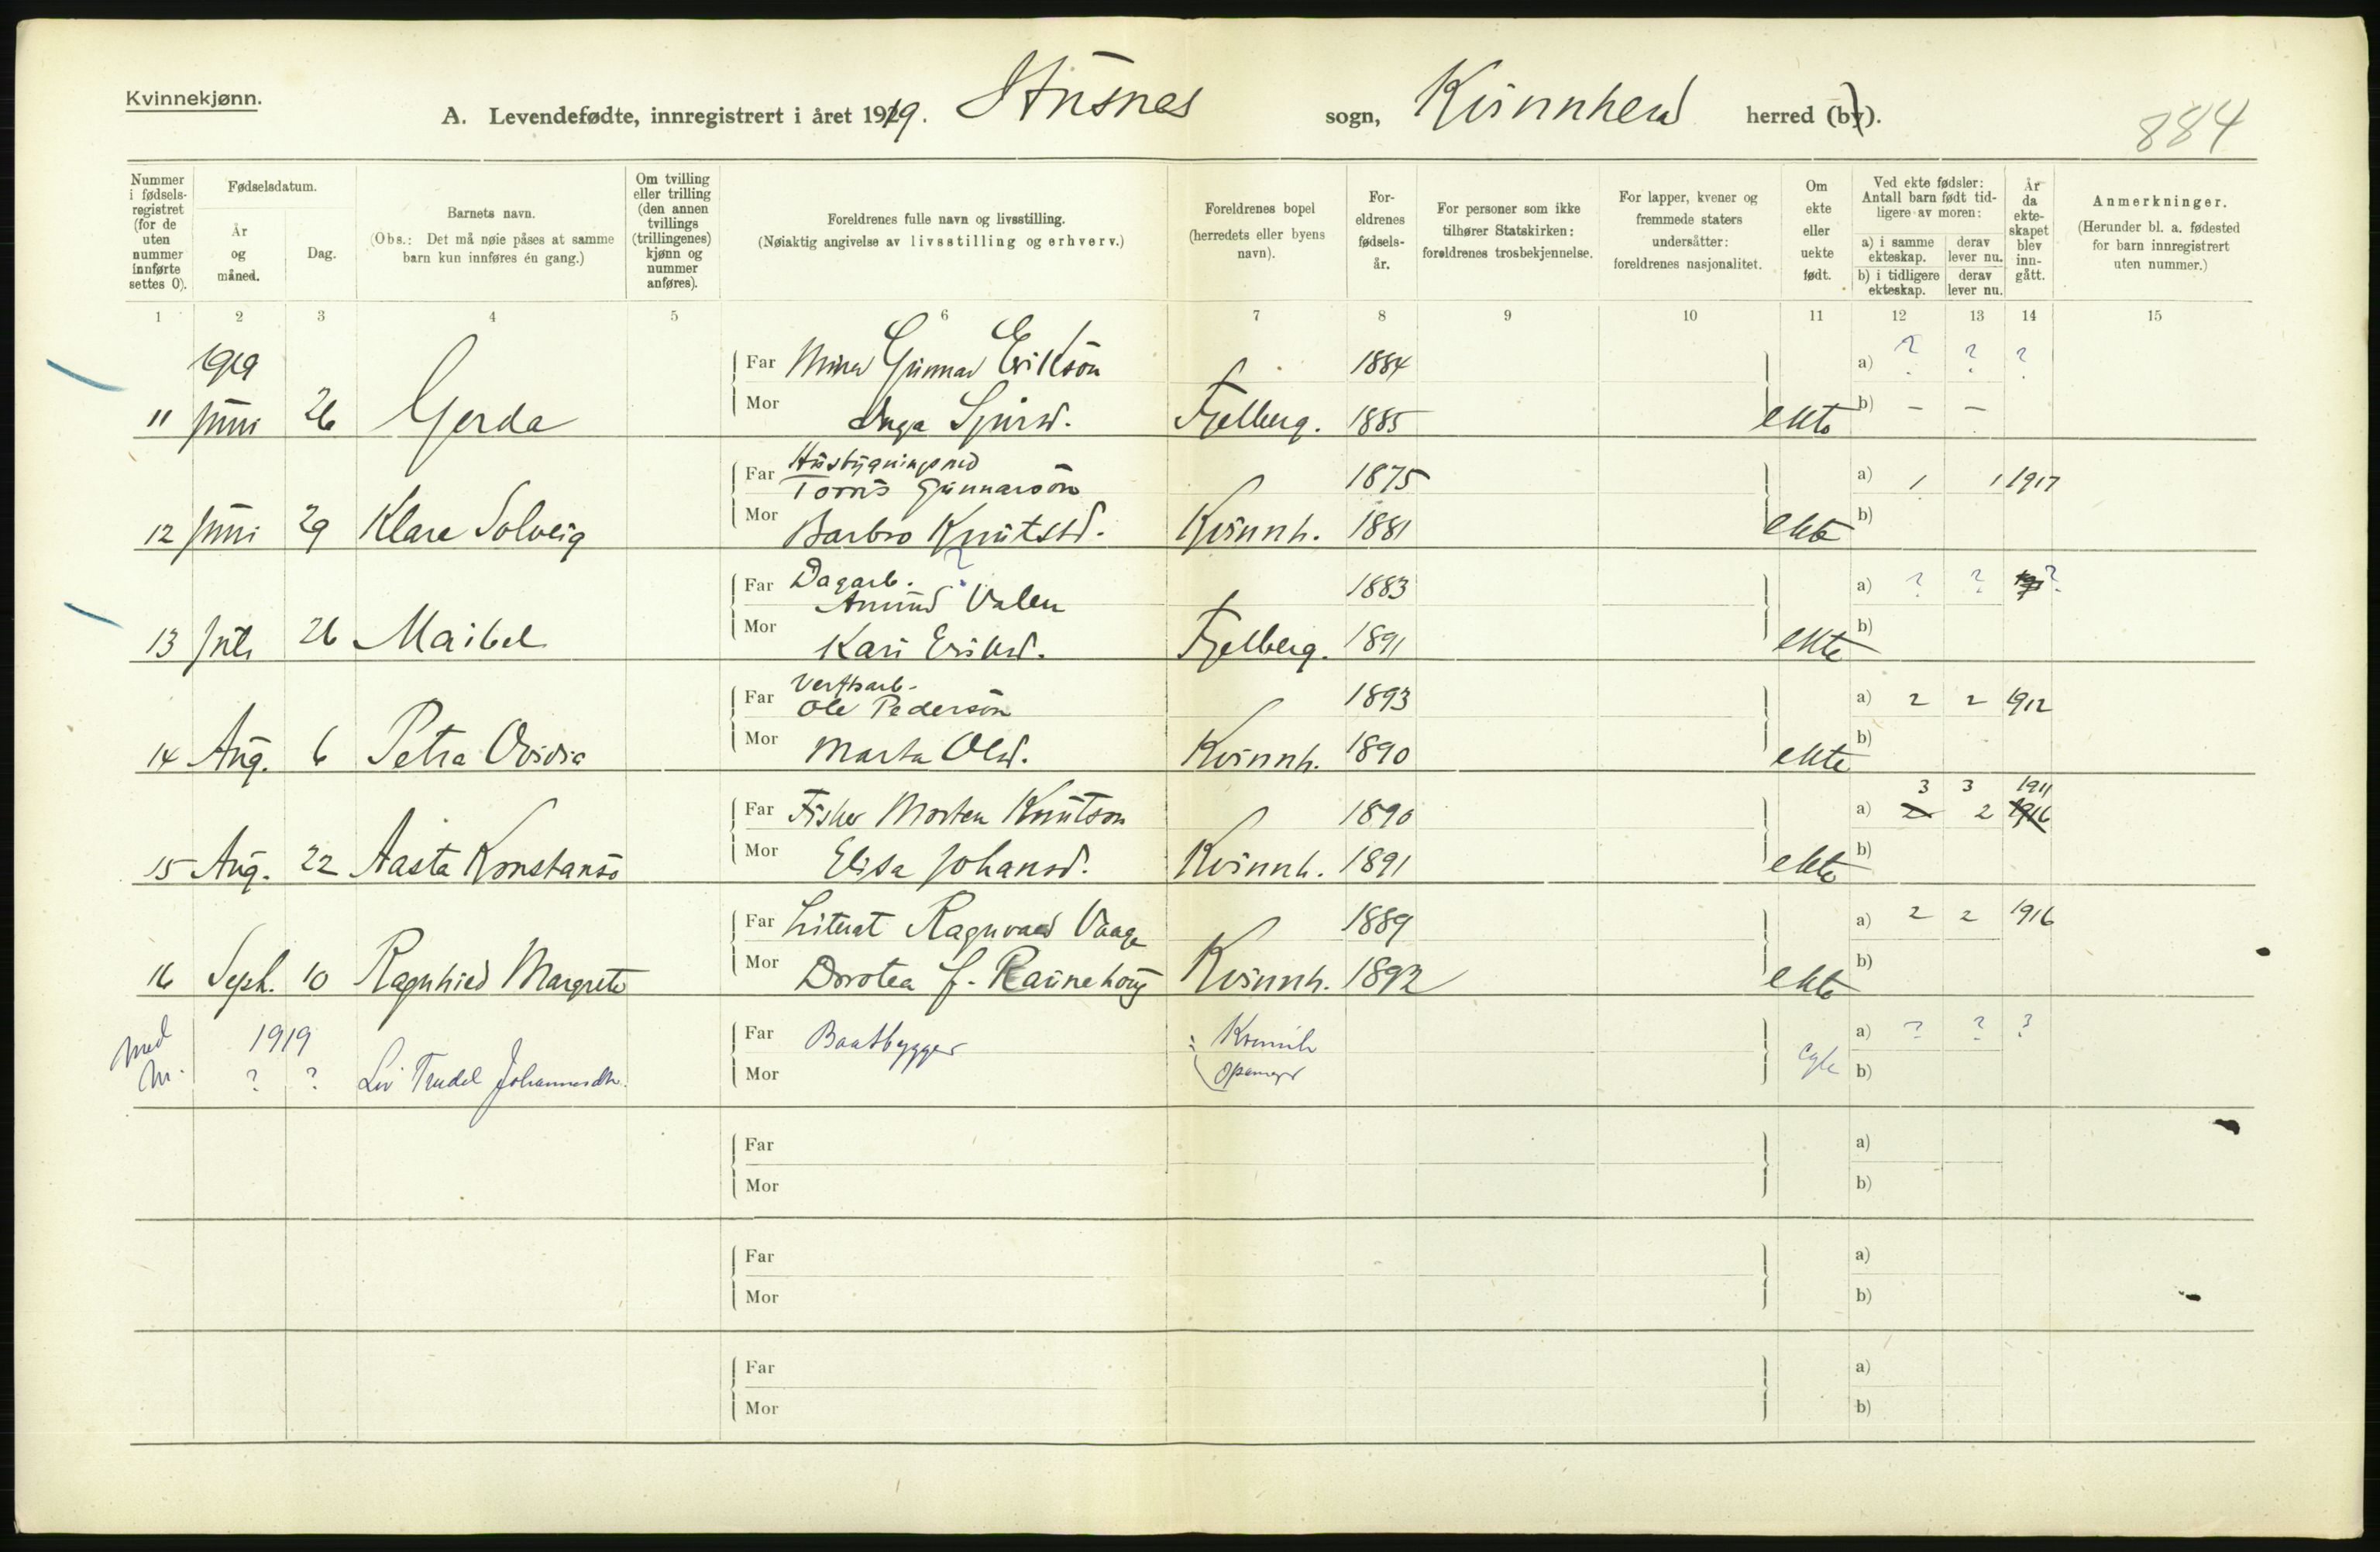 Kvinnekjønn.
A. Levendefødte, innregistrert i året 1919. Husnes sogn, Kvinnherad herred (by).
884
Nummer i fødselsregistret (for de uten nummer innførte settes 0).
Fødselsdatum.
År og måned.
Dag.
Barnets navn.
(Obs.: Det må nøie påses at samme barn kun innføres én gang.)
Om tvilling eller trilling (den annen tvillings (trillingenes) kjønn og nummer anføres).
Foreldrenes fulle navn og livsstilling.
(Nøiaktig angivelse av livsstilling og erhverv.)
Foreldrenes bopel (herredets eller byens navn).
Foreldrenes fødselsår.
For personer som ikke tilhører Statskirken: foreldrenes trosbekjennelse.
For lapper, kvener og fremmede staters undersåtter: foreldrenes nasjonalitet.
Om ekte eller uekte født.
Ved ekte fødsler: Antall barn født tidligere av moren:
a) i samme ekteskap. derav lever nu.
b) i tidligere ekteskap. derav lever nu.
År da ekteskapet blev inngått.
Anmerkninger.
(Herunder bl. a. fødested for barn innregistrert uten nummer.)
1 2 3 4 5 6 7 8 9 10 11 12 13 14 15
1919 Far Miner Gunnar Erikson 1884 a) ? ? ?
11 Juni 26 Gerda Mor Inga Sjursd. Fjelberg. 1885 ekte b) – –
Far Husbygningsmed
Torris Gunnarson 1875 a) 1 1 1917
12 Juni 29 Klara Solveig Mor Barbro Knutsd. Kvinnh. 1881 ekte b)
Far Dagarb. ?
Amund Valen 1883 a) ? ? ?
13 Juli 26 Maibel Mor Kari Eriksd. Fjelberg. 1891 ekte b)
Far Verftsarb.
Ole Pederson 1893 a) 2 2 1912
14 Aug. 6 Petra Ovidia Mor Marta Olsd. Kvinnh. 1890 ekte b)
3 3 1911
Far Fisker Morten Knutson 1890 a) 2 2 1916
15 Aug. 22 Aasta Konstanse Mor Elisa Johansd. Kvinnh. 1891 ekte b)
Far Literat Ragnvald Vaage 1889 a) 2 2 1916
16 Sept. 10 Ragnhild Margrete Mor Dorotea J. Raunehaug Kvinnh. 1892 ekte b)
med 1919 Far Baatbygger Kvinnh a) ? ? ?
Nr. ? ? Liv Trudel Johannesdtr. Mor b)
Far a)
Mor b)
Far a)
Mor b)
Far a)
Mor b)